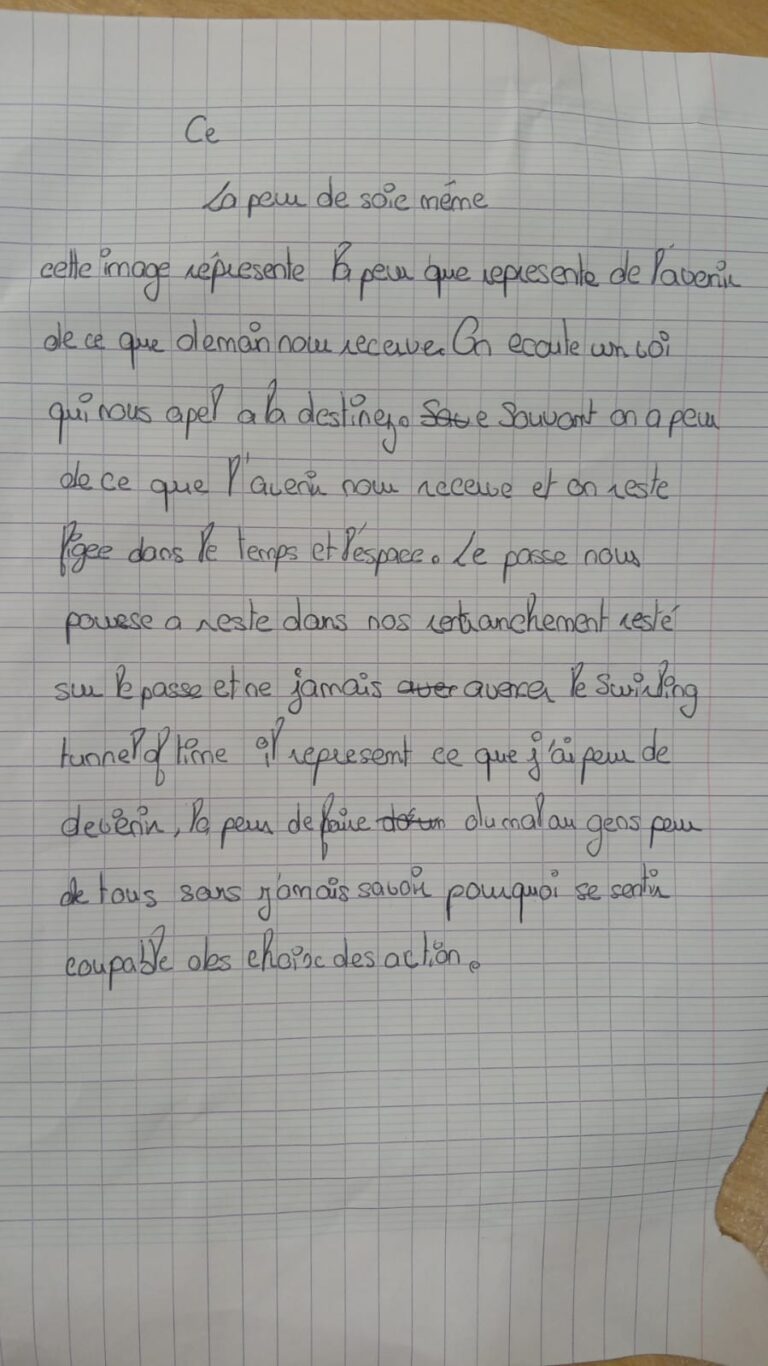 Ce
La peur de soie même
cette image répresente la peur que represente de l'avenir
de ce que demain nous receuve. On ecoute un voi
qui nous apel a la destinez. Souvant on a peur
de ce que l'avenir nous receuve et on reste
figee dans le temps et l'espace. Le passe nous
pouese a reste dans nos retranchement resté
sur le passe et ne jamais avencer le swirling
tunnel of time il represent ce que j'ai peur de
devenir, la peur de faire du mal au gens peur
de tous sans jamais savoir pourquoi se sentir
coupable des choix des action.